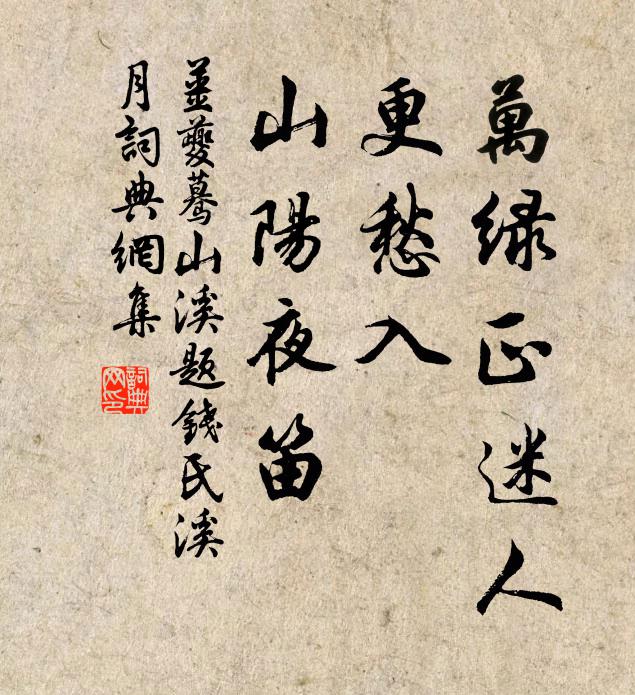 萬綠正迷人
更愁入
山陽夜笛
姜夔驀山溪題錢氏溪
月詞典網集
詞典
网印